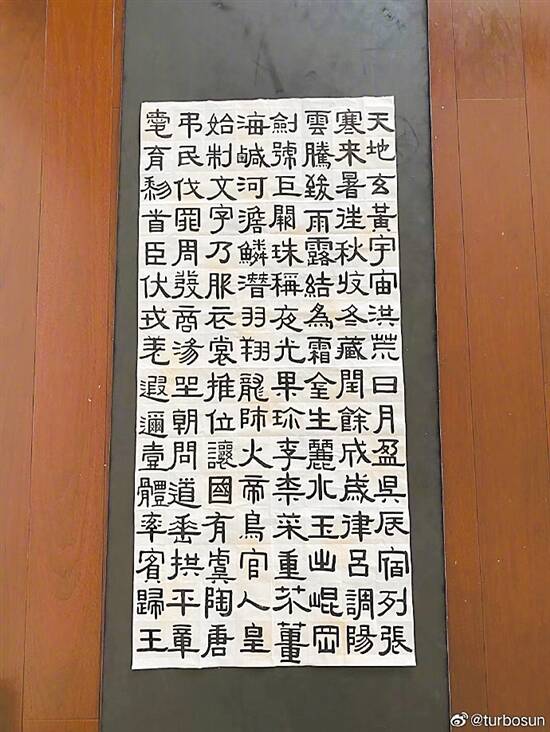 天地玄黃宇宙洪荒日月盈昃辰宿列張
寒来暑往秋收冬藏閏餘成歲律呂調陽
雲騰致雨露結為霜金生麗水玉出崐岡
劍號巨闕珠稱夜光果珍李柰菜重芥薑
海鹹河澹鱗潛羽翔龍師火帝鳥官人皇
始制文字乃服衣裳推位讓國有虞陶唐
弔民伐罪周發商湯坐朝問道垂拱平章
愛育黎首臣伏戎羌遐邇壹體率賓歸王
@turbosun